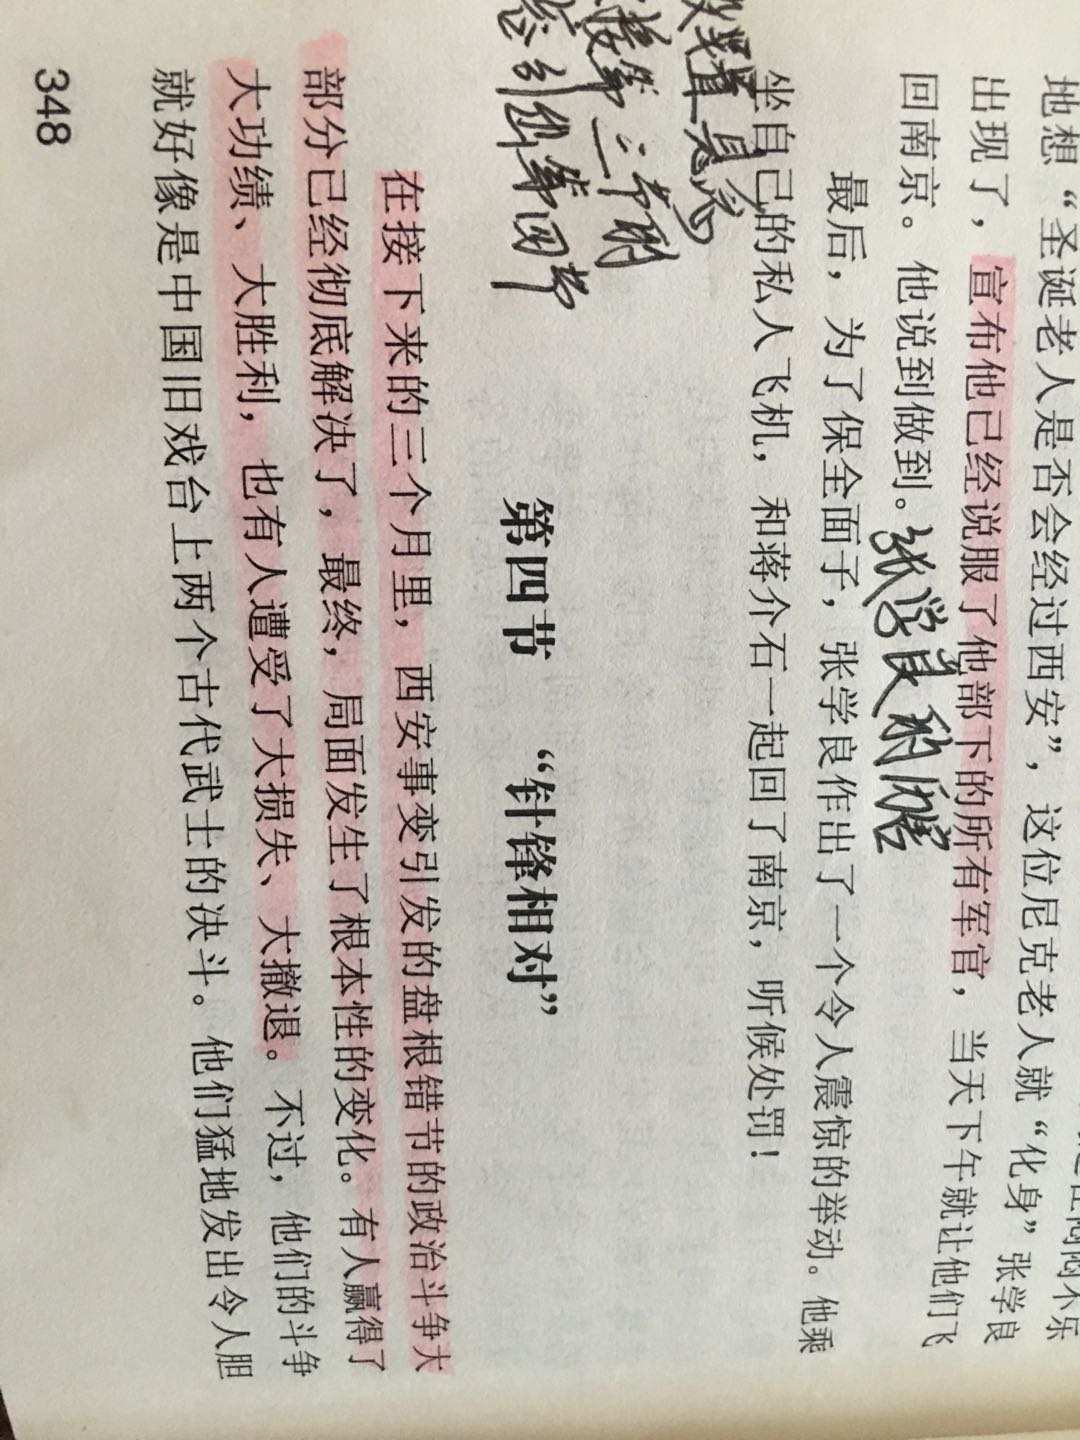 地想“圣诞老人是否会经过西安”，这位尼克老人就“化身”张学良
出现了，宣布他已经说服了他部下的所有军官，当天下午就让他们飞
回南京。他说到做到。
张学良的
最后，为了保全面子，张学良作出了一个令人震惊的举动。他乘
坐自己的私人飞机，和蒋介石一起回了南京，听候处罚！
承接第三节的
总引继第四节
第四节 “针锋相对”
在接下来的三个月里，西安事变引发的盘根错节的政治斗争大
部分已经彻底解决了，最终，局面发生了根本性的变化。有人赢得了
大功绩、大胜利，也有人遭受了大损失、大撤退。不过，他们的斗争
就好像是中国旧戏台上两个古代武士的决斗。他们猛地发出令人胆
348